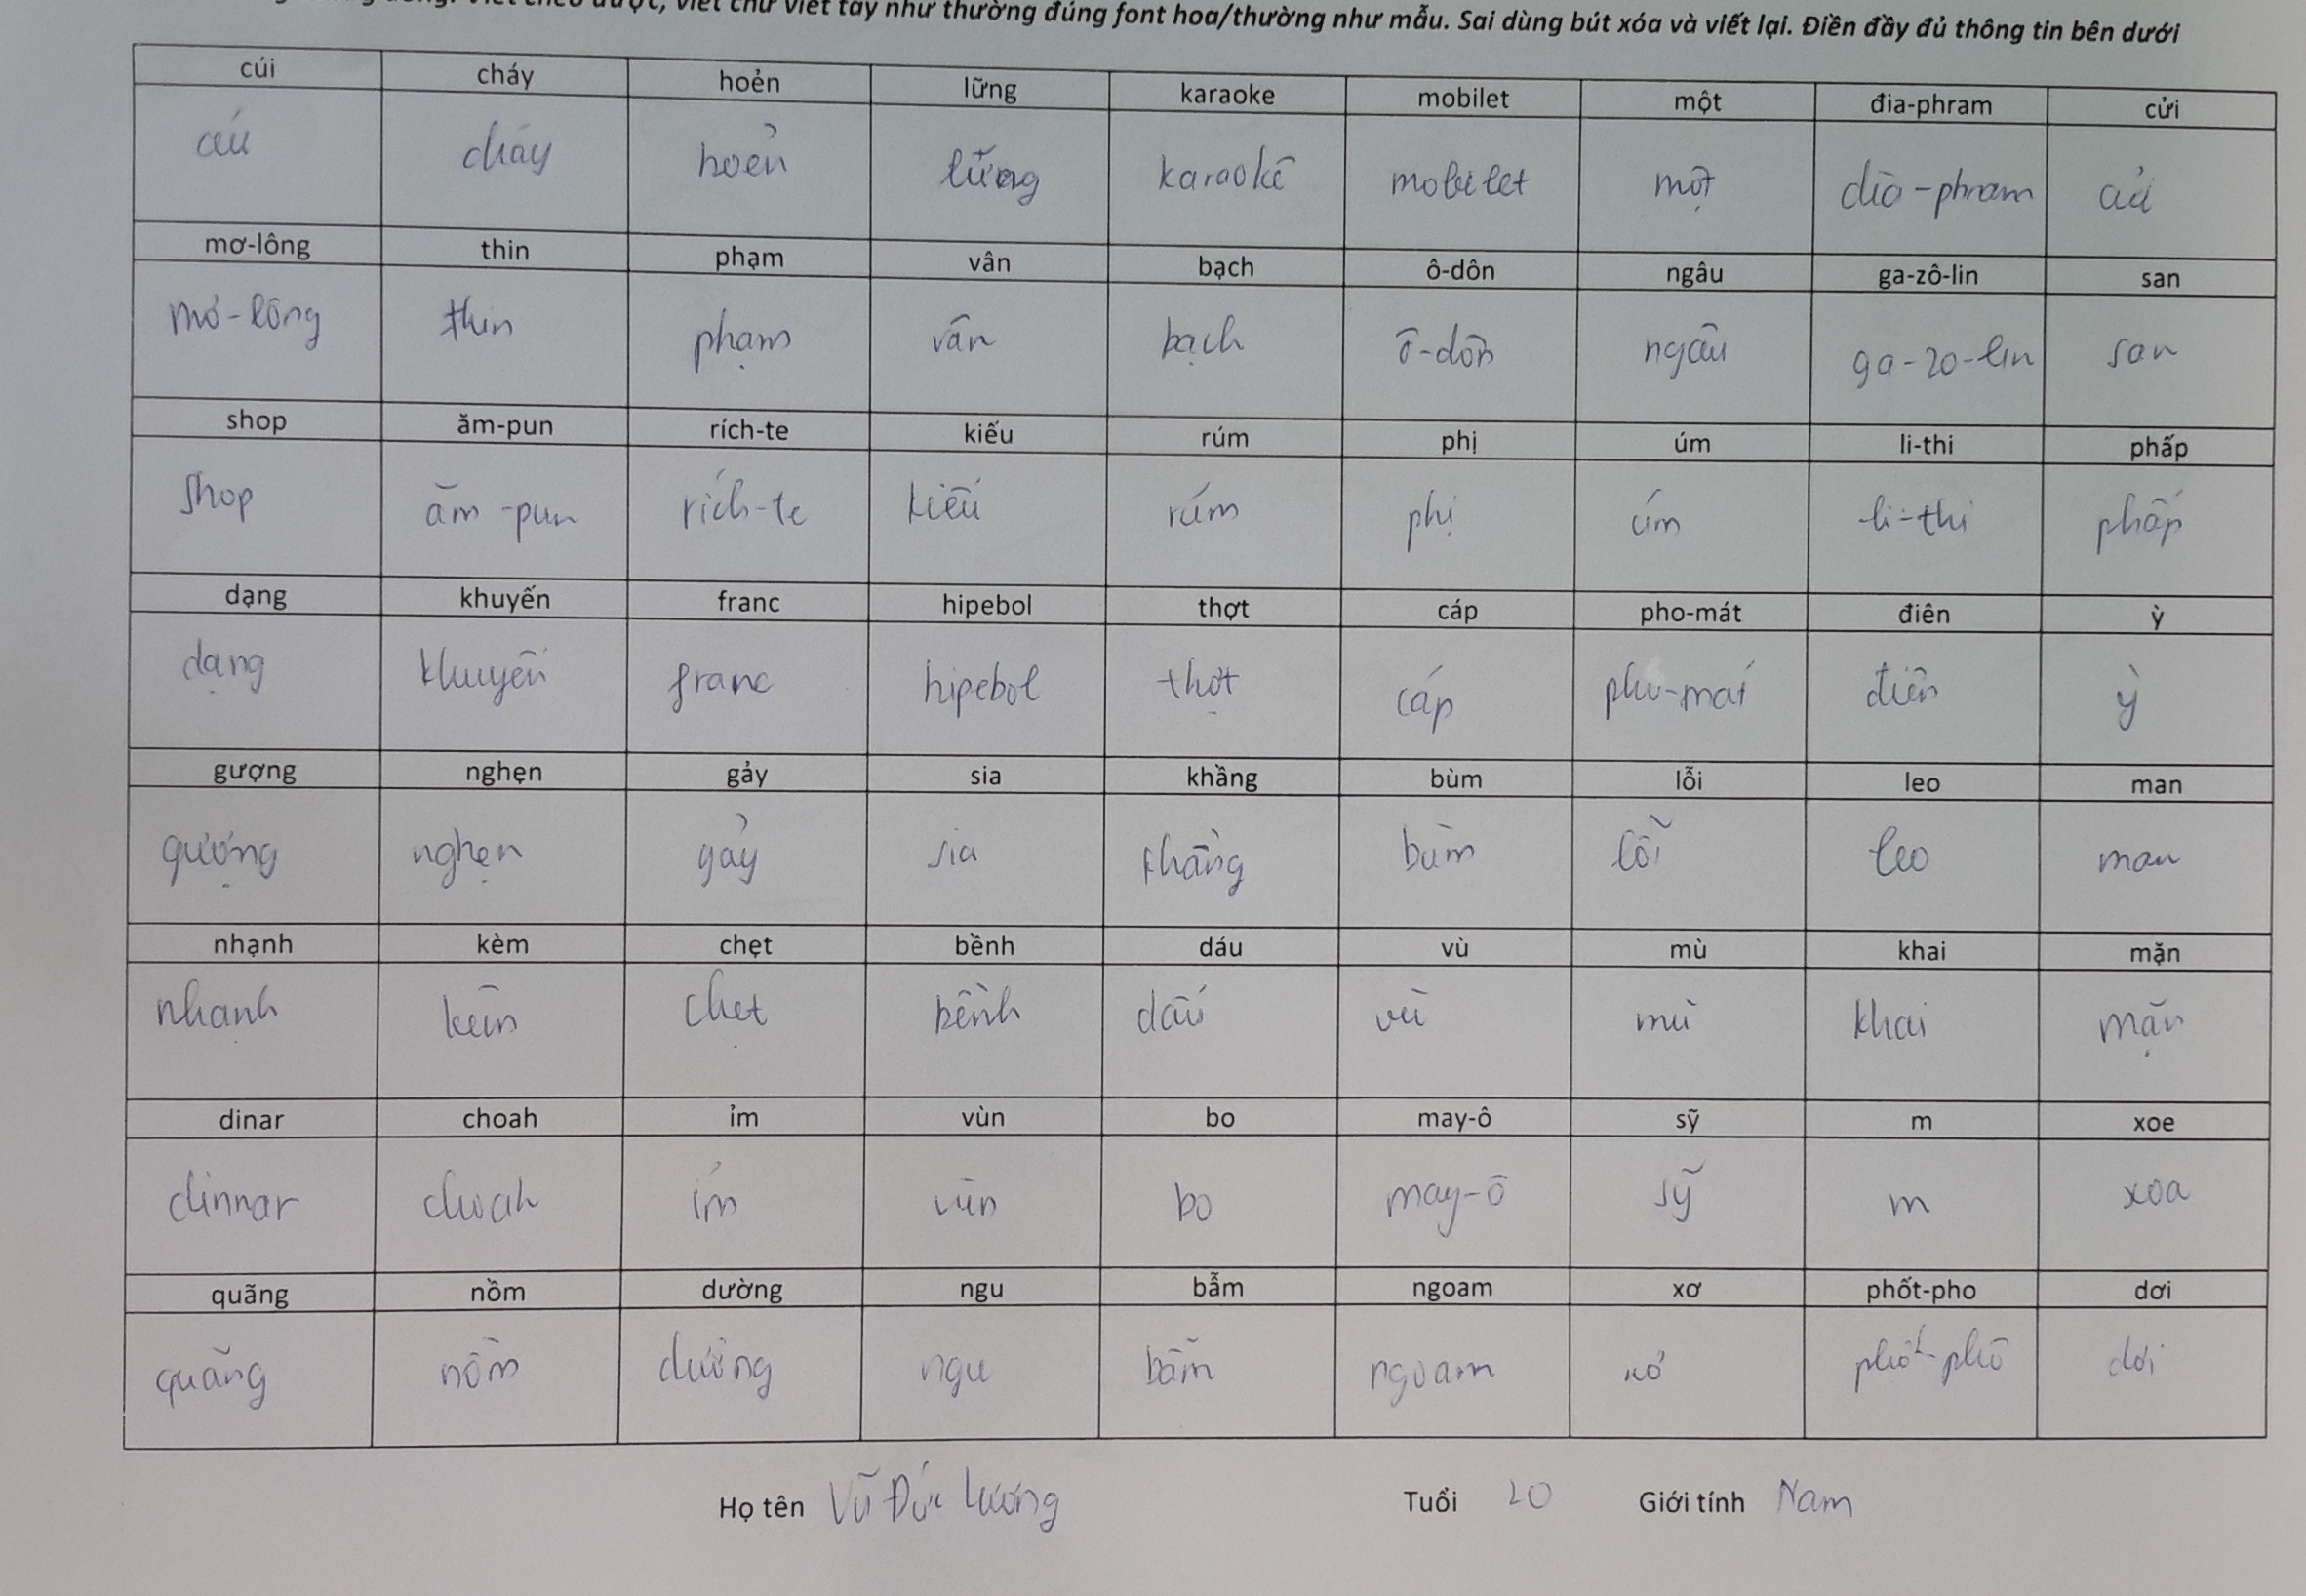 viết chữ viết tay như thường đúng font hoa/thường như mẫu. Sai dùng bút xóa và viết lại. Điền đầy đủ thông tin bên dưới
cúi cháy hoẻn lững karaoke mobilet một đia-phram cửi
cúi cháy hoẻn lững karaokê mobilet một dia-phram cửi
mơ-lông thin phạm vân bạch ô-dôn ngâu ga-zô-lin san
mơ-lông thin phạm vân bạch ô-dôn ngâu ga-zo-lin san
shop ăm-pun rích-te kiếu rúm phị úm li-thi phấp
shop ăm-pun rích-te kiếu rúm phị úm li-thi phấp
dạng khuyến franc hipebol thợt cáp pho-mát điên ỳ
dạng khuyến franc hipebol thợt cáp pho-mát điên ỳ
gượng nghẹn gảy sia khằng bùm lỗi leo man
gượng nghẹn gảy sia khằng bùm lỗi leo man
nhạnh kèm chẹt bềnh dáu vù mù khai mặn
nhạnh kèm chẹt bềnh dấu vù mù khai mặn
dinar choah ỉm vùn bo may-ô sỹ m xoe
dinnar choah ỉm vùn bo may-ô sỹ m xoa
quãng nồm dường ngu bẫm ngoam xơ phốt-pho dơi
quãng nồm dường ngu bẫm ngoam xơ phốt-phô dơi
Họ tên Vũ Đức Lương Tuổi 20 Giới tính Nam